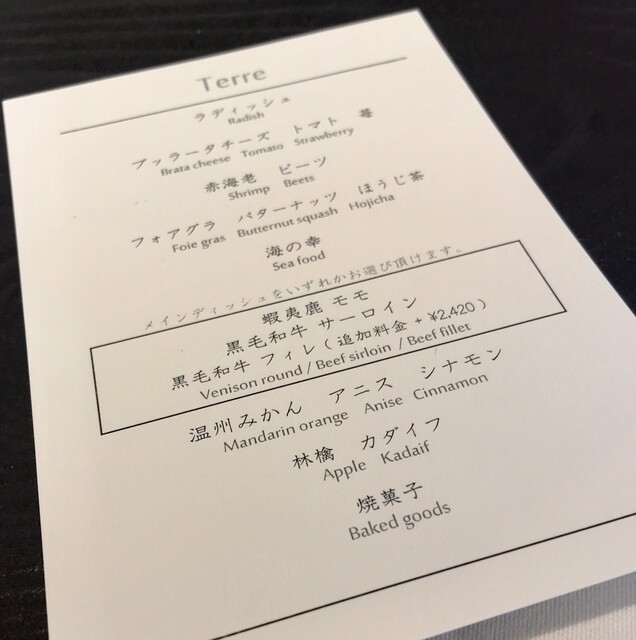 Terre
ラディッシュ
Radish
ブッラータチーズ トマト 苺
Brata cheese Tomato Strawberry
赤海老 ビーツ
Shrimp Beets
フォアグラ バターナッツ ほうじ茶
Foie gras Butternut squash Hojicha
海の幸
Sea food
メインディッシュをいずれかお選び頂けます。
蝦夷鹿 モモ
黒毛和牛 サーロイン
黒毛和牛 フィレ(追加料金 + ¥2,420)
Venison round / Beef sirloin / Beef fillet
温州みかん アニス シナモン
Mandarin orange Anise Cinnamon
林檎 カダイフ
Apple Kadaif
焼菓子
Baked goods